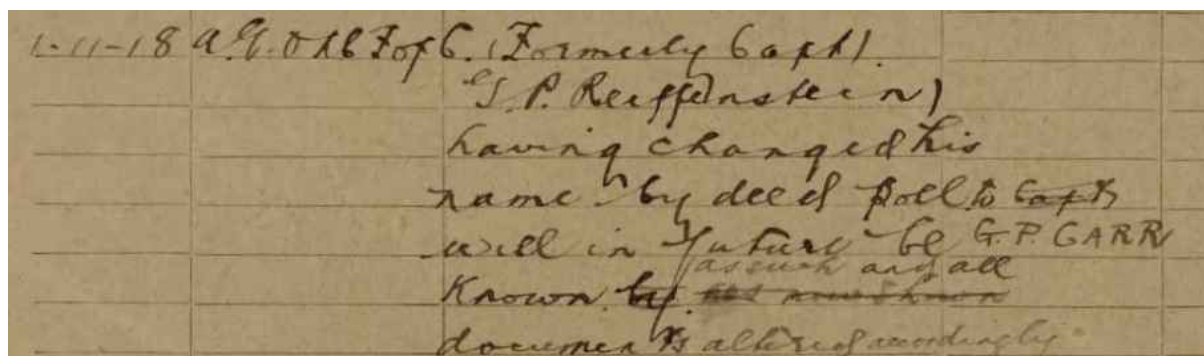 1-11-18 A.G. O i/c Fof C. (Formerly Capt).
G.P. Reiffenstein)
having changed his
name by deed poll to Capt
will in future be G.P. CARR
as such and all
Known by
documents altered accordingly